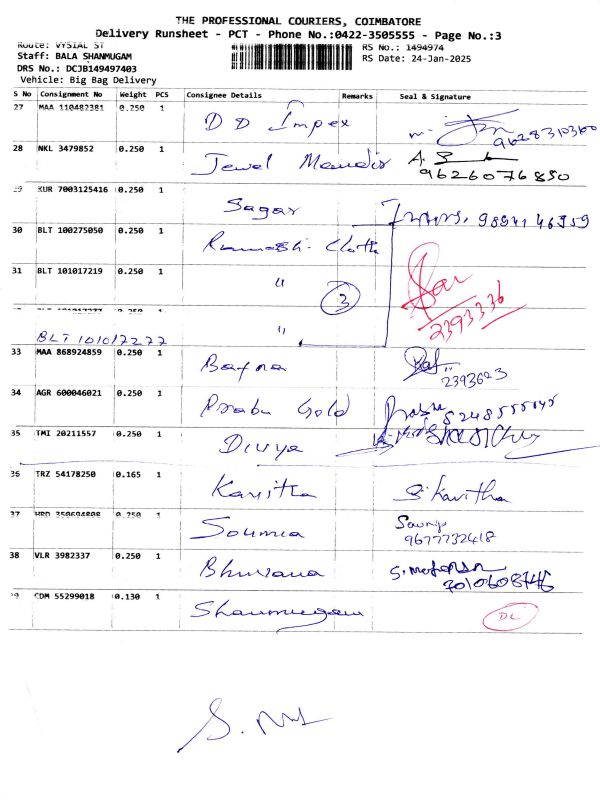 THE PROFESSIONAL COURIERS, COIMBATORE
Delivery Runsheet - PCT - Phone No.:0422-3505555 - Page No.:3
Route: VYSIAL ST
RS No.: 1494974
Staff: BALA SHANMUGAM
RS Date: 24-Jan-2025
DRS No.: DCJB149497403
Vehicle: Big Bag Delivery
S No Consignment No Weight PCS Consignee Details Remarks Seal & Signature
27 MAA 110482381 0.250 1 D D Impex
9628310360
28 NKL 3479852 0.250 1 Jewel Mandir A.
9626076850
29 KUR 7003125416 0.250 1 Sagar
9894146959
30 BLT 100275050 0.250 1 Ramnash. Cloth
31 BLT 101017219 0.250 1 "
3
2393336
0.250 1 "
BLT 101017277
33 MAA 868924859 0.250 1 Bafna
2393623
34 AGR 600046021 0.250 1 Prabu Gold
35 TMI 20211557 0.250 1 Divya
36 TRZ 54178250 0.165 1 Kavitha S. Kavitha
37 0.250 1 Soumia Sowmya
9677732418
38 VLR 3982337 0.250 1 Bhuvana
7010608746
39 CDM 55299018 0.130 1 Shanmugam DL